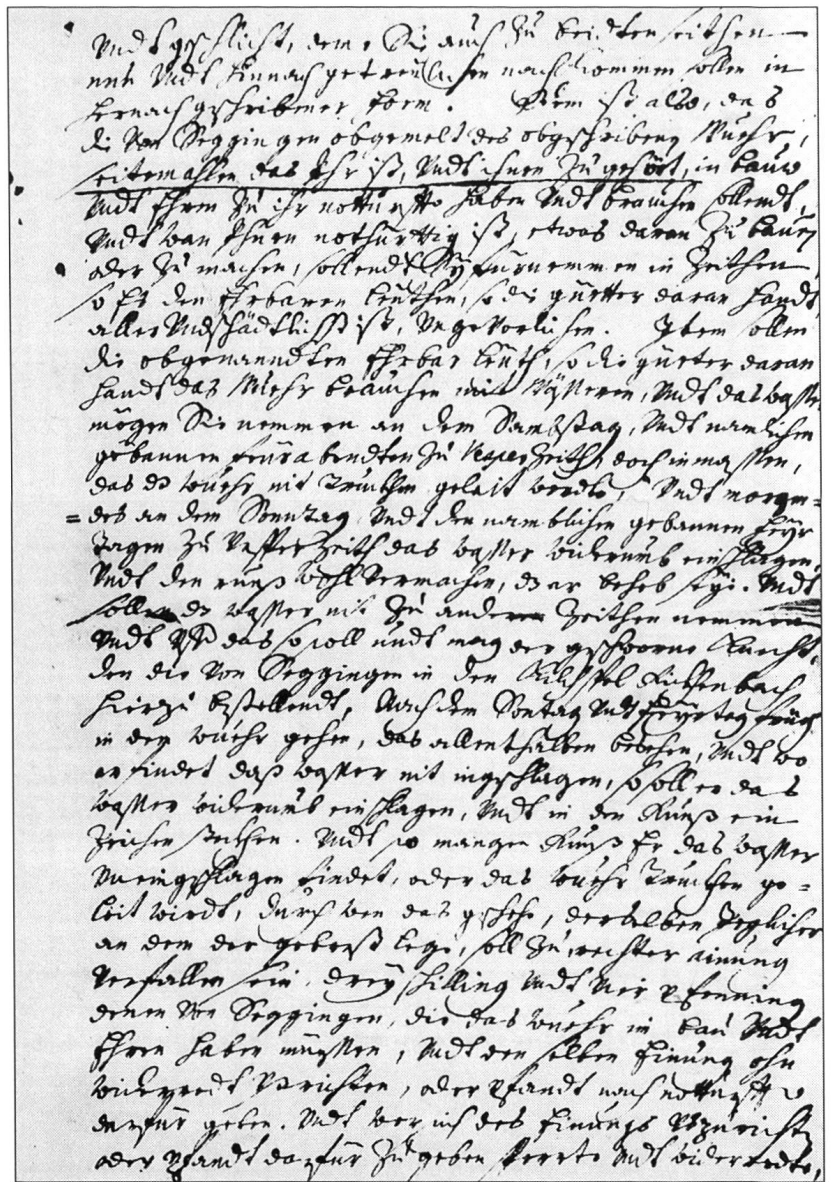 Undt geschlicht, deme Sie auch Zu beidten seithen
nun Undt hinnach getreulichen nachkommen sollen in
hernach geschribner form. Dem ist also, das
die Von Seggingen obgemelt des obgeschriben Wuehr,
seitemahlen das Ihr ist, Undt ihnen Zu gehört, in bauw
Undt Ehren Zu ihr notturfft haben Undt brauchen sollendt,
Undt wan Ihnen nothürftig ist, etwas daran Zu bauen
oder Zu machen, sollendt Sy fürnemmen in Zeithen
so Es den Ehrbaren leüthen, so die güetter daran handt,
aller Unschädtlichist ist, Ungevorlichen. Item sollen
die obgenanndten Ehrbar leüth, so die güeter daran
handt das Wuehr brauchen mit Wässeren, Undt das wasser
mögen Sie nemmen an dem Sambstag, Undt namlichen
gebannen feürabendten Zu Vesper Zeith, doch inmassen,
das dz wuehr nit Trucken geleit werde, Undt morgen=
=des an dem Sonntag Undt den namblichen gebannen feyr
Tagen Zu Vesper Zeith das wasser widerumb einschlagen,
Undt den runß wohl Vermachen, dz er beheb seye. Undt
sollen dz wasser nit Zu anderen Zeithen nemmen
Undt Uff das so soll undt mag der geschworne Knecht,
den die Von Seggingen in den Kilchspel Rickhenbach
hierzu bestellendt, Nach dem Sontag Undt Feyrtag früeh
in den wuehr gehen, das allenthalben besehen, Undt wo
er findet daß wasser nit ingeschlagen, so soll er das
wasser widerumb einschlagen, Undt in den Runß ein
Zeichen steckhen. Undt so mangen Runß Er das wasser
Uneingeschlagen findet, oder das wuehr Truckhen ge=
leit wirdt, durch wen das geschehe, derselben Jeglicher
an dem der gebrest lege, soll Zu rechter ainung
Verfallen sein, drey schilling Undt Vier pfenning
denen Von Seggingen, die das wuehr in bau Undt
Ehren haben müessen, Undt den selben Einung ohn
widerredt Ußrichten, oder pfandt nach notturfft
darfür geben. Undt wer sich des Einungs Ußzurichten
oder pfandt darfür Zu geben sperrte Undt widerredte,